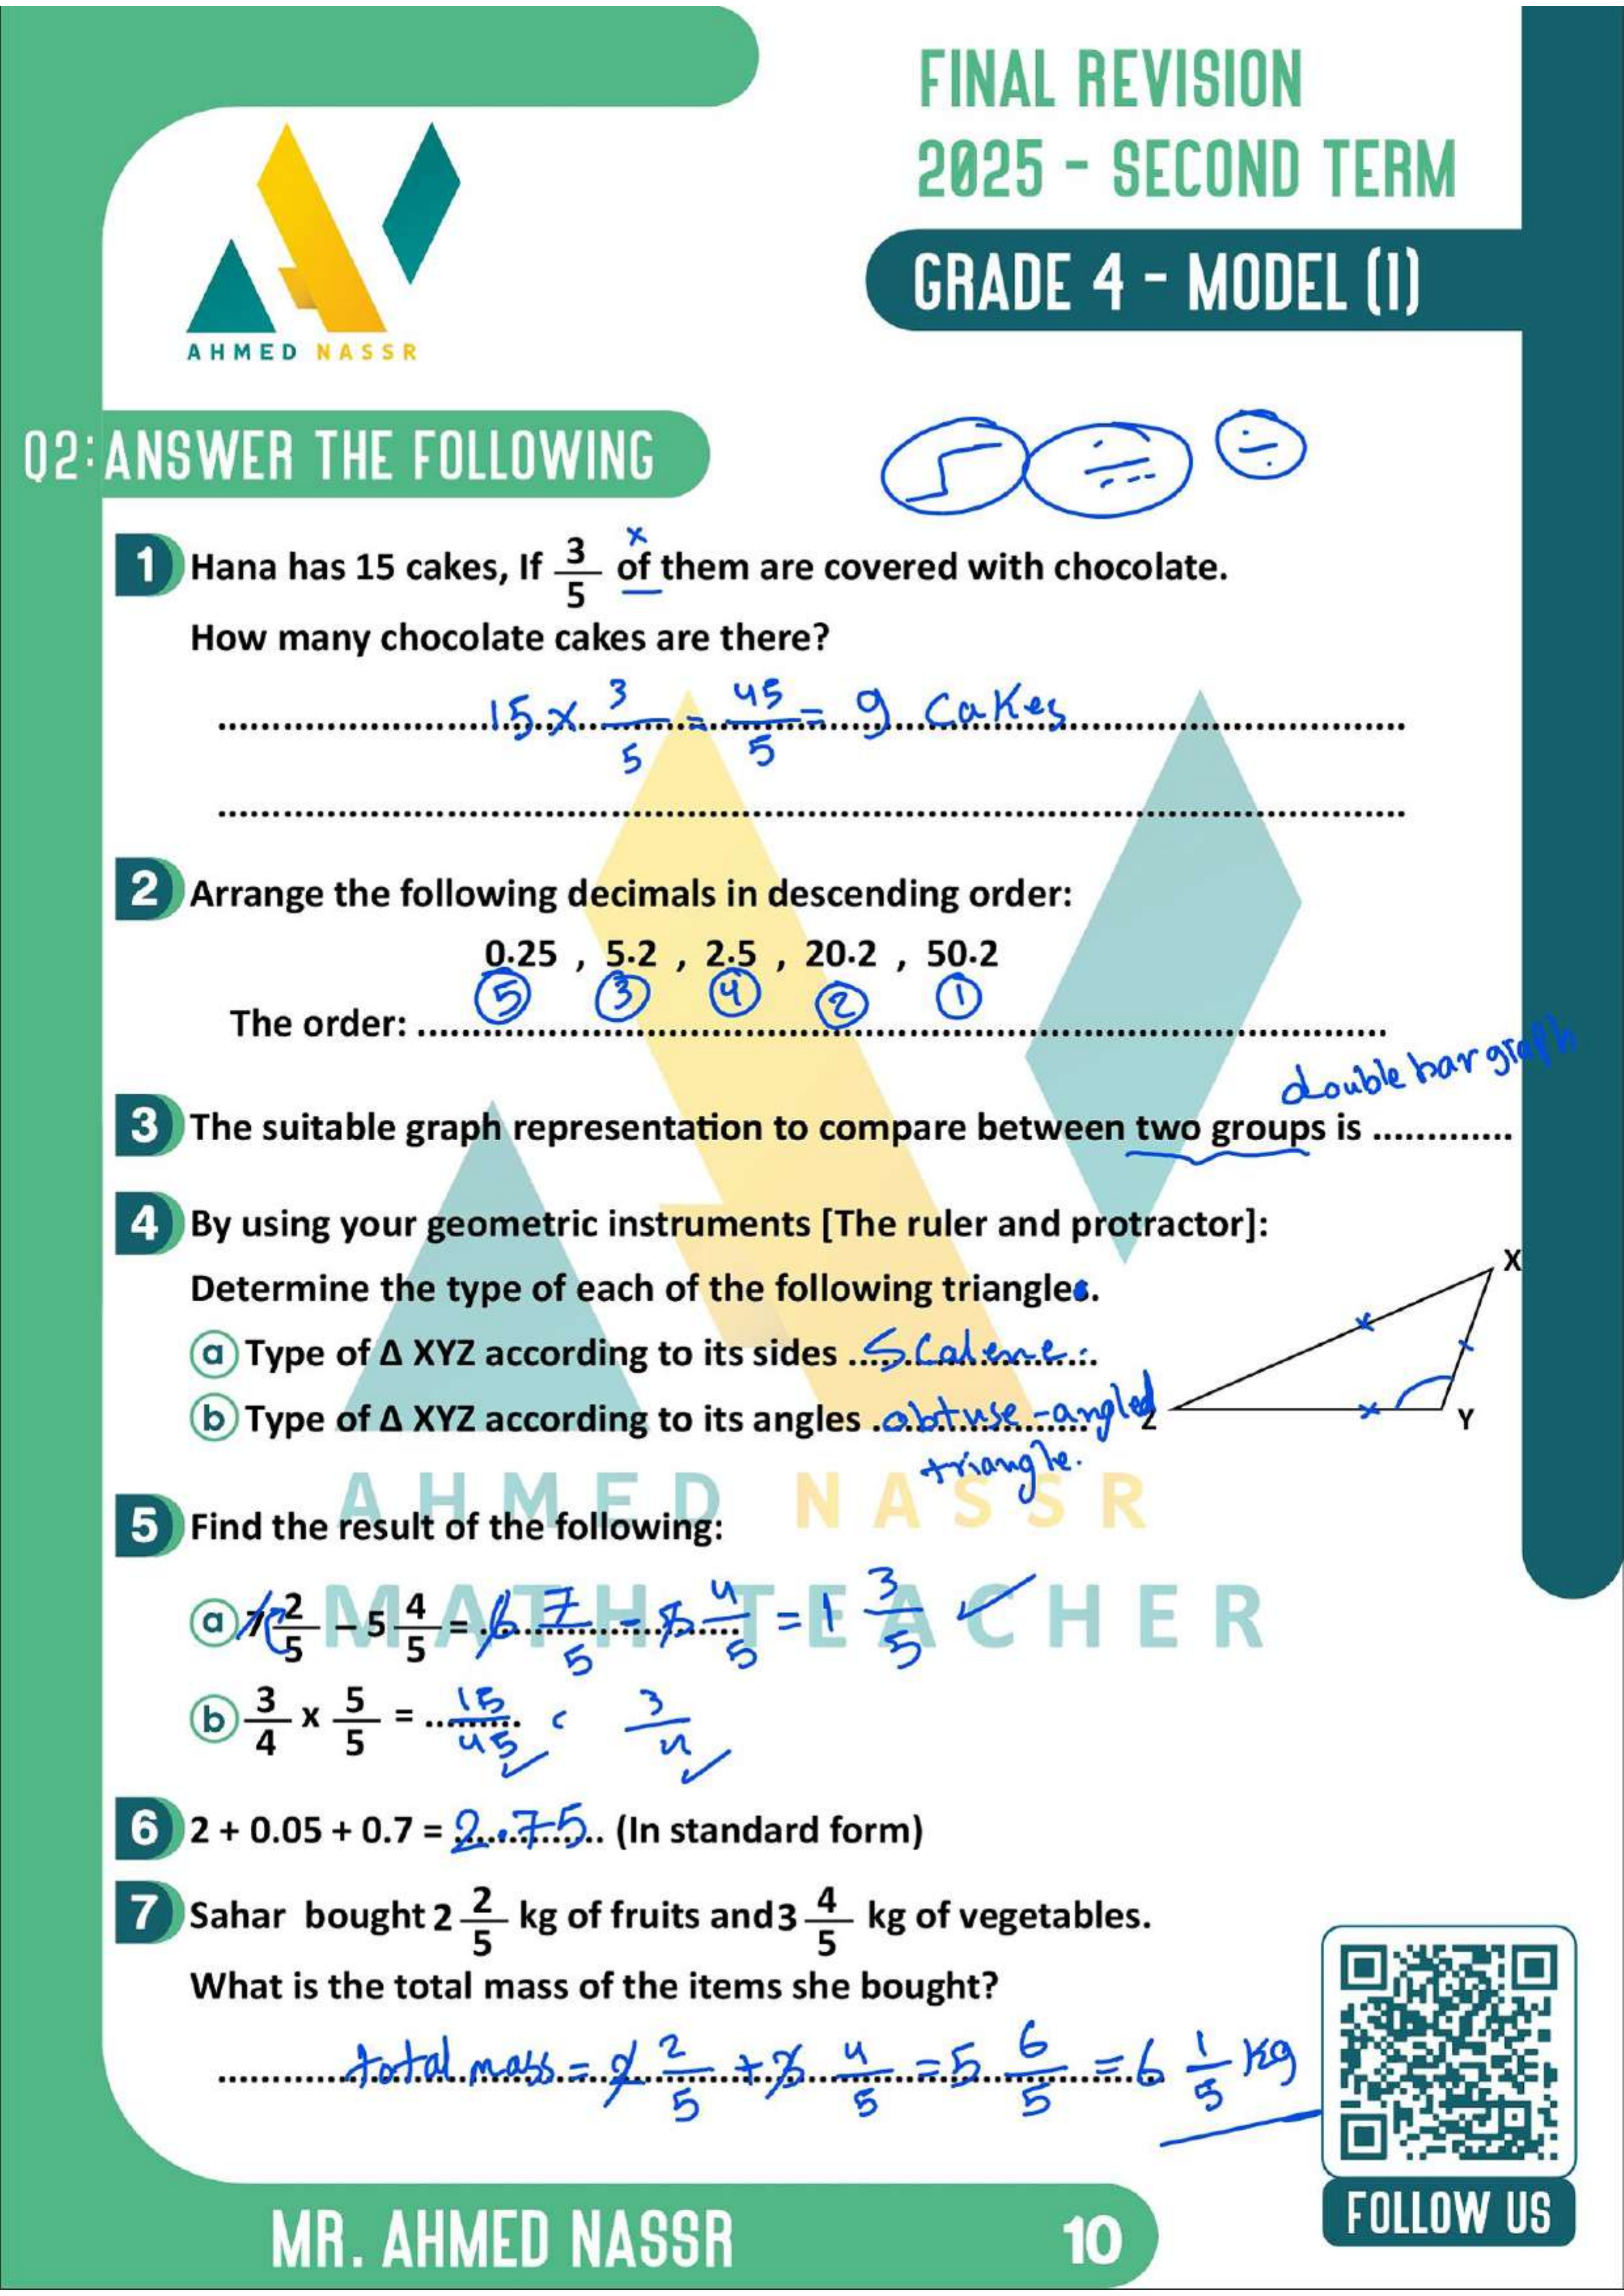 FINAL REVISION
2025 - SECOND TERM
GRADE 4 - MODEL (1)
AHMED NASSR
Q2: ANSWER THE FOLLOWING
1 Hana has 15 cakes, If 3/5 of them are covered with chocolate.
x
How many chocolate cakes are there?
15 x 3/5 = 45/5 = 9 cakes
2 Arrange the following decimals in descending order:
0.25 , 5.2 , 2.5 , 20.2 , 50.2
5 3 4 2 1
The order: ..........
double bar graph
3 The suitable graph representation to compare between two groups is .............
4 By using your geometric instruments [The ruler and protractor]:
Determine the type of each of the following triangles.
X
a Type of Δ XYZ according to its sides Scalene
b Type of Δ XYZ according to its angles obtuse-angled
Z Y
triangle.
AHMED NASSR
5 Find the result of the following:
MATH TEACHER
a 7 2/5 – 5 4/5 = 6 7/5 - 5 4/5 = 1 3/5 ✓
b 3/4 x 5/5 = 15/45 ✓ 3/4 ✓
6 2 + 0.05 + 0.7 = 2.75 (In standard form)
7 Sahar bought 2 2/5 kg of fruits and 3 4/5 kg of vegetables.
What is the total mass of the items she bought?
total mass = 2 2/5 + 3 4/5 = 5 6/5 = 6 1/5 kg
MR. AHMED NASSR
10
FOLLOW US